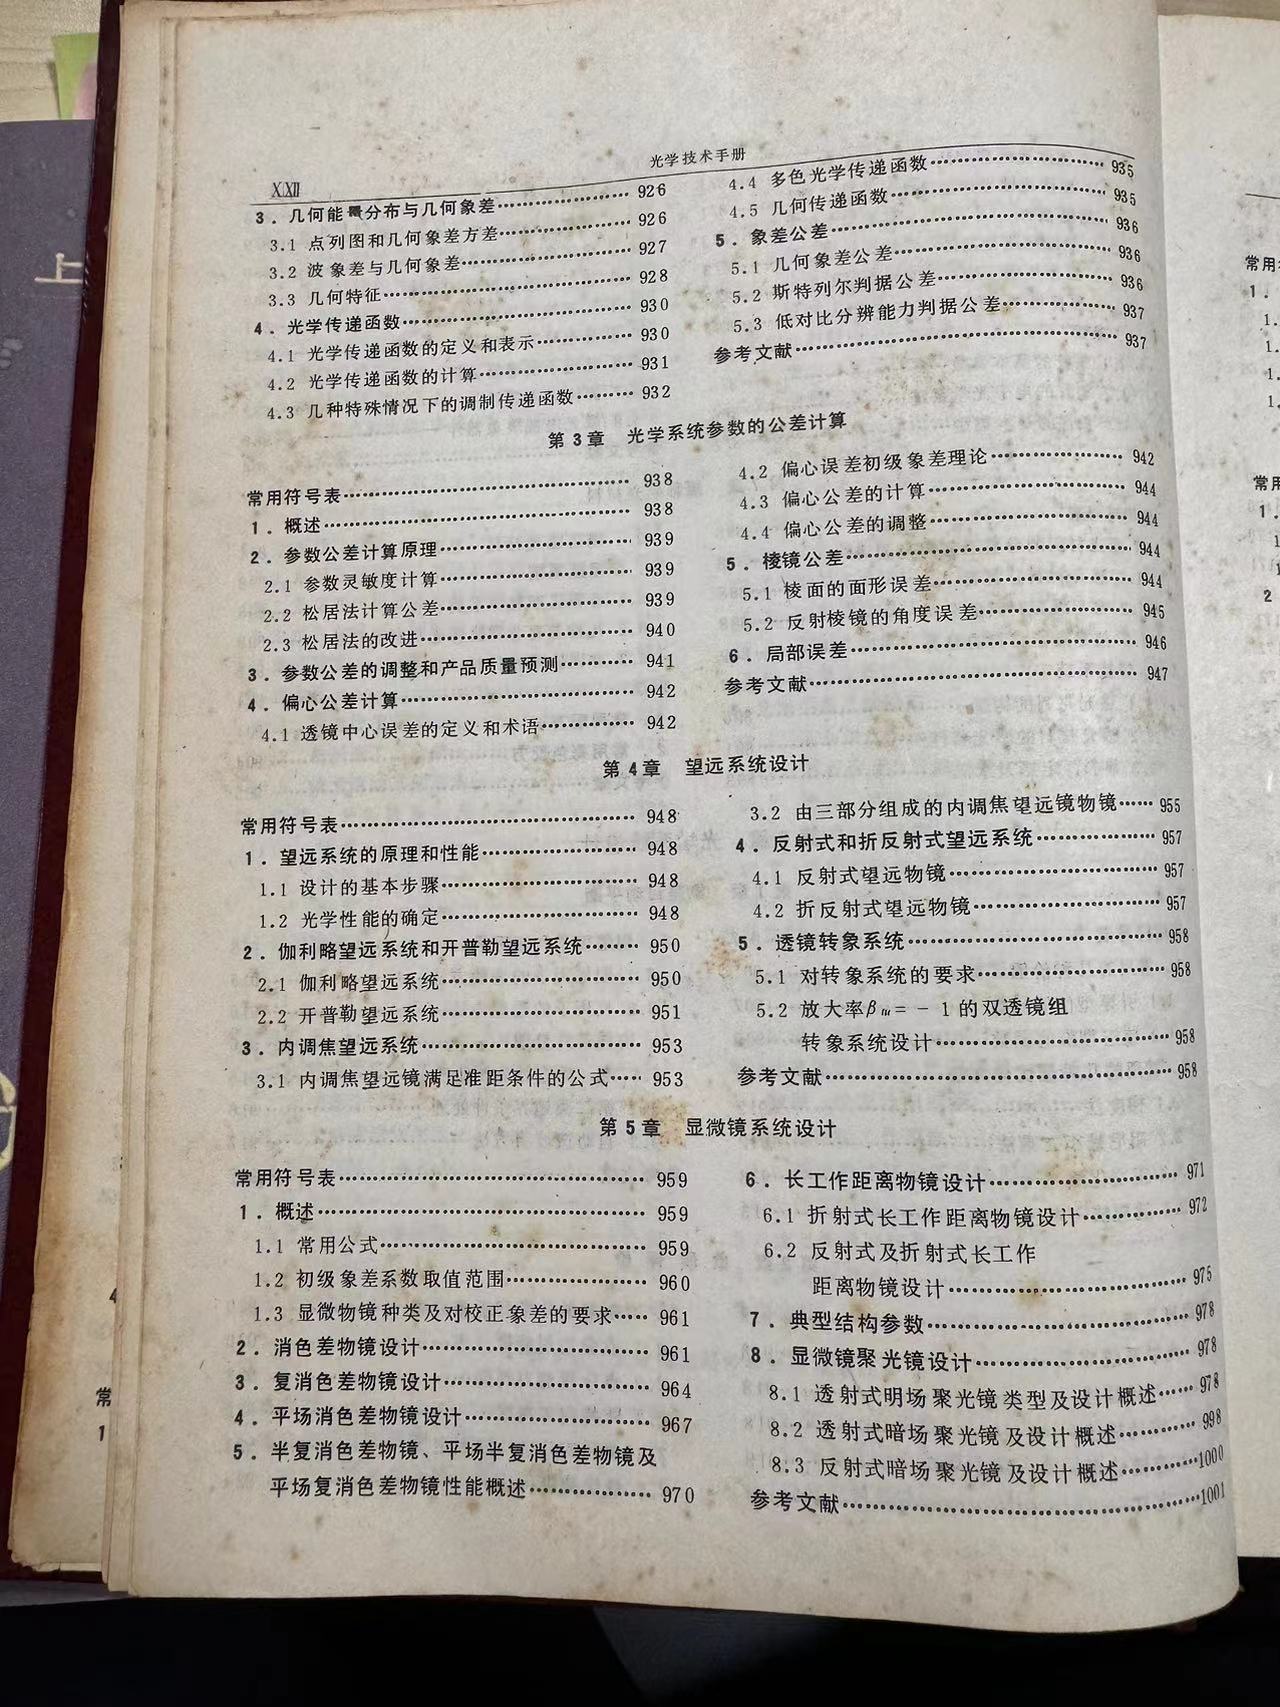 光学技术手册
XXII
3．几何能量分布与几何象差……926
3.1 点列图和几何象差方差……926
3.2 波象差与几何象差……927
3.3 几何特征……928
4．光学传递函数……930
4.1 光学传递函数的定义和表示……930
4.2 光学传递函数的计算……931
4.3 几种特殊情况下的调制传递函数……932
4.4 多色光学传递函数……935
4.5 几何传递函数……935
5．象差公差……936
5.1 几何象差公差……936
5.2 斯特列尔判据公差……936
5.3 低对比分辨能力判据公差……937
参考文献……937
第3章 光学系统参数的公差计算
常用符号表……938
1．概述……938
2．参数公差计算原理……939
2.1 参数灵敏度计算……939
2.2 松居法计算公差……939
2.3 松居法的改进……940
3．参数公差的调整和产品质量预测……941
4．偏心公差计算……942
4.1 透镜中心误差的定义和术语……942
4.2 偏心误差初级象差理论……942
4.3 偏心公差的计算……944
4.4 偏心公差的调整……944
5．棱镜公差……944
5.1 棱面的面形误差……944
5.2 反射棱镜的角度误差……945
6．局部误差……946
参考文献……947
第4章 望远系统设计
常用符号表……948
1．望远系统的原理和性能……948
1.1 设计的基本步骤……948
1.2 光学性能的确定……948
2．伽利略望远系统和开普勒望远系统……950
2.1 伽利略望远系统……950
2.2 开普勒望远系统……951
3．内调焦望远系统……953
3.1 内调焦望远镜满足准距条件的公式……953
3.2 由三部分组成的内调焦望远镜物镜……955
4．反射式和折反射式望远系统……957
4.1 反射式望远物镜……957
4.2 折反射式望远物镜……957
5．透镜转象系统……958
5.1 对转象系统的要求……958
5.2 放大率β = － 1 的双透镜组
转象系统设计……958
参考文献……958
第5章 显微镜系统设计
常用符号表……959
1．概述……959
1.1 常用公式……959
1.2 初级象差系数取值范围……960
1.3 显微物镜种类及对校正象差的要求……961
2．消色差物镜设计……961
3．复消色差物镜设计……964
4．平场消色差物镜设计……967
5．半复消色差物镜、平场半复消色差物镜及
平场复消色差物镜性能概述……970
6．长工作距离物镜设计……971
6.1 折射式长工作距离物镜设计……972
6.2 反射式及折射式长工作
距离物镜设计……975
7．典型结构参数……978
8．显微镜聚光镜设计……978
8.1 透射式明场聚光镜类型及设计概述……978
8.2 透射式暗场聚光镜及设计概述……998
8.3 反射式暗场聚光镜及设计概述……1000
参考文献……1001
上
4
常
1
常用
1．
1.
1.
1.
1.
常用
1．
1
1
2